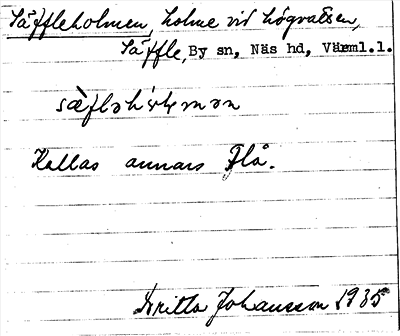 Säffleholmen, holme vid högvattn,
Säffle, By sn, Näs hd, Värml.l.
Kallas annars Flå.
Britta Johansson 1935